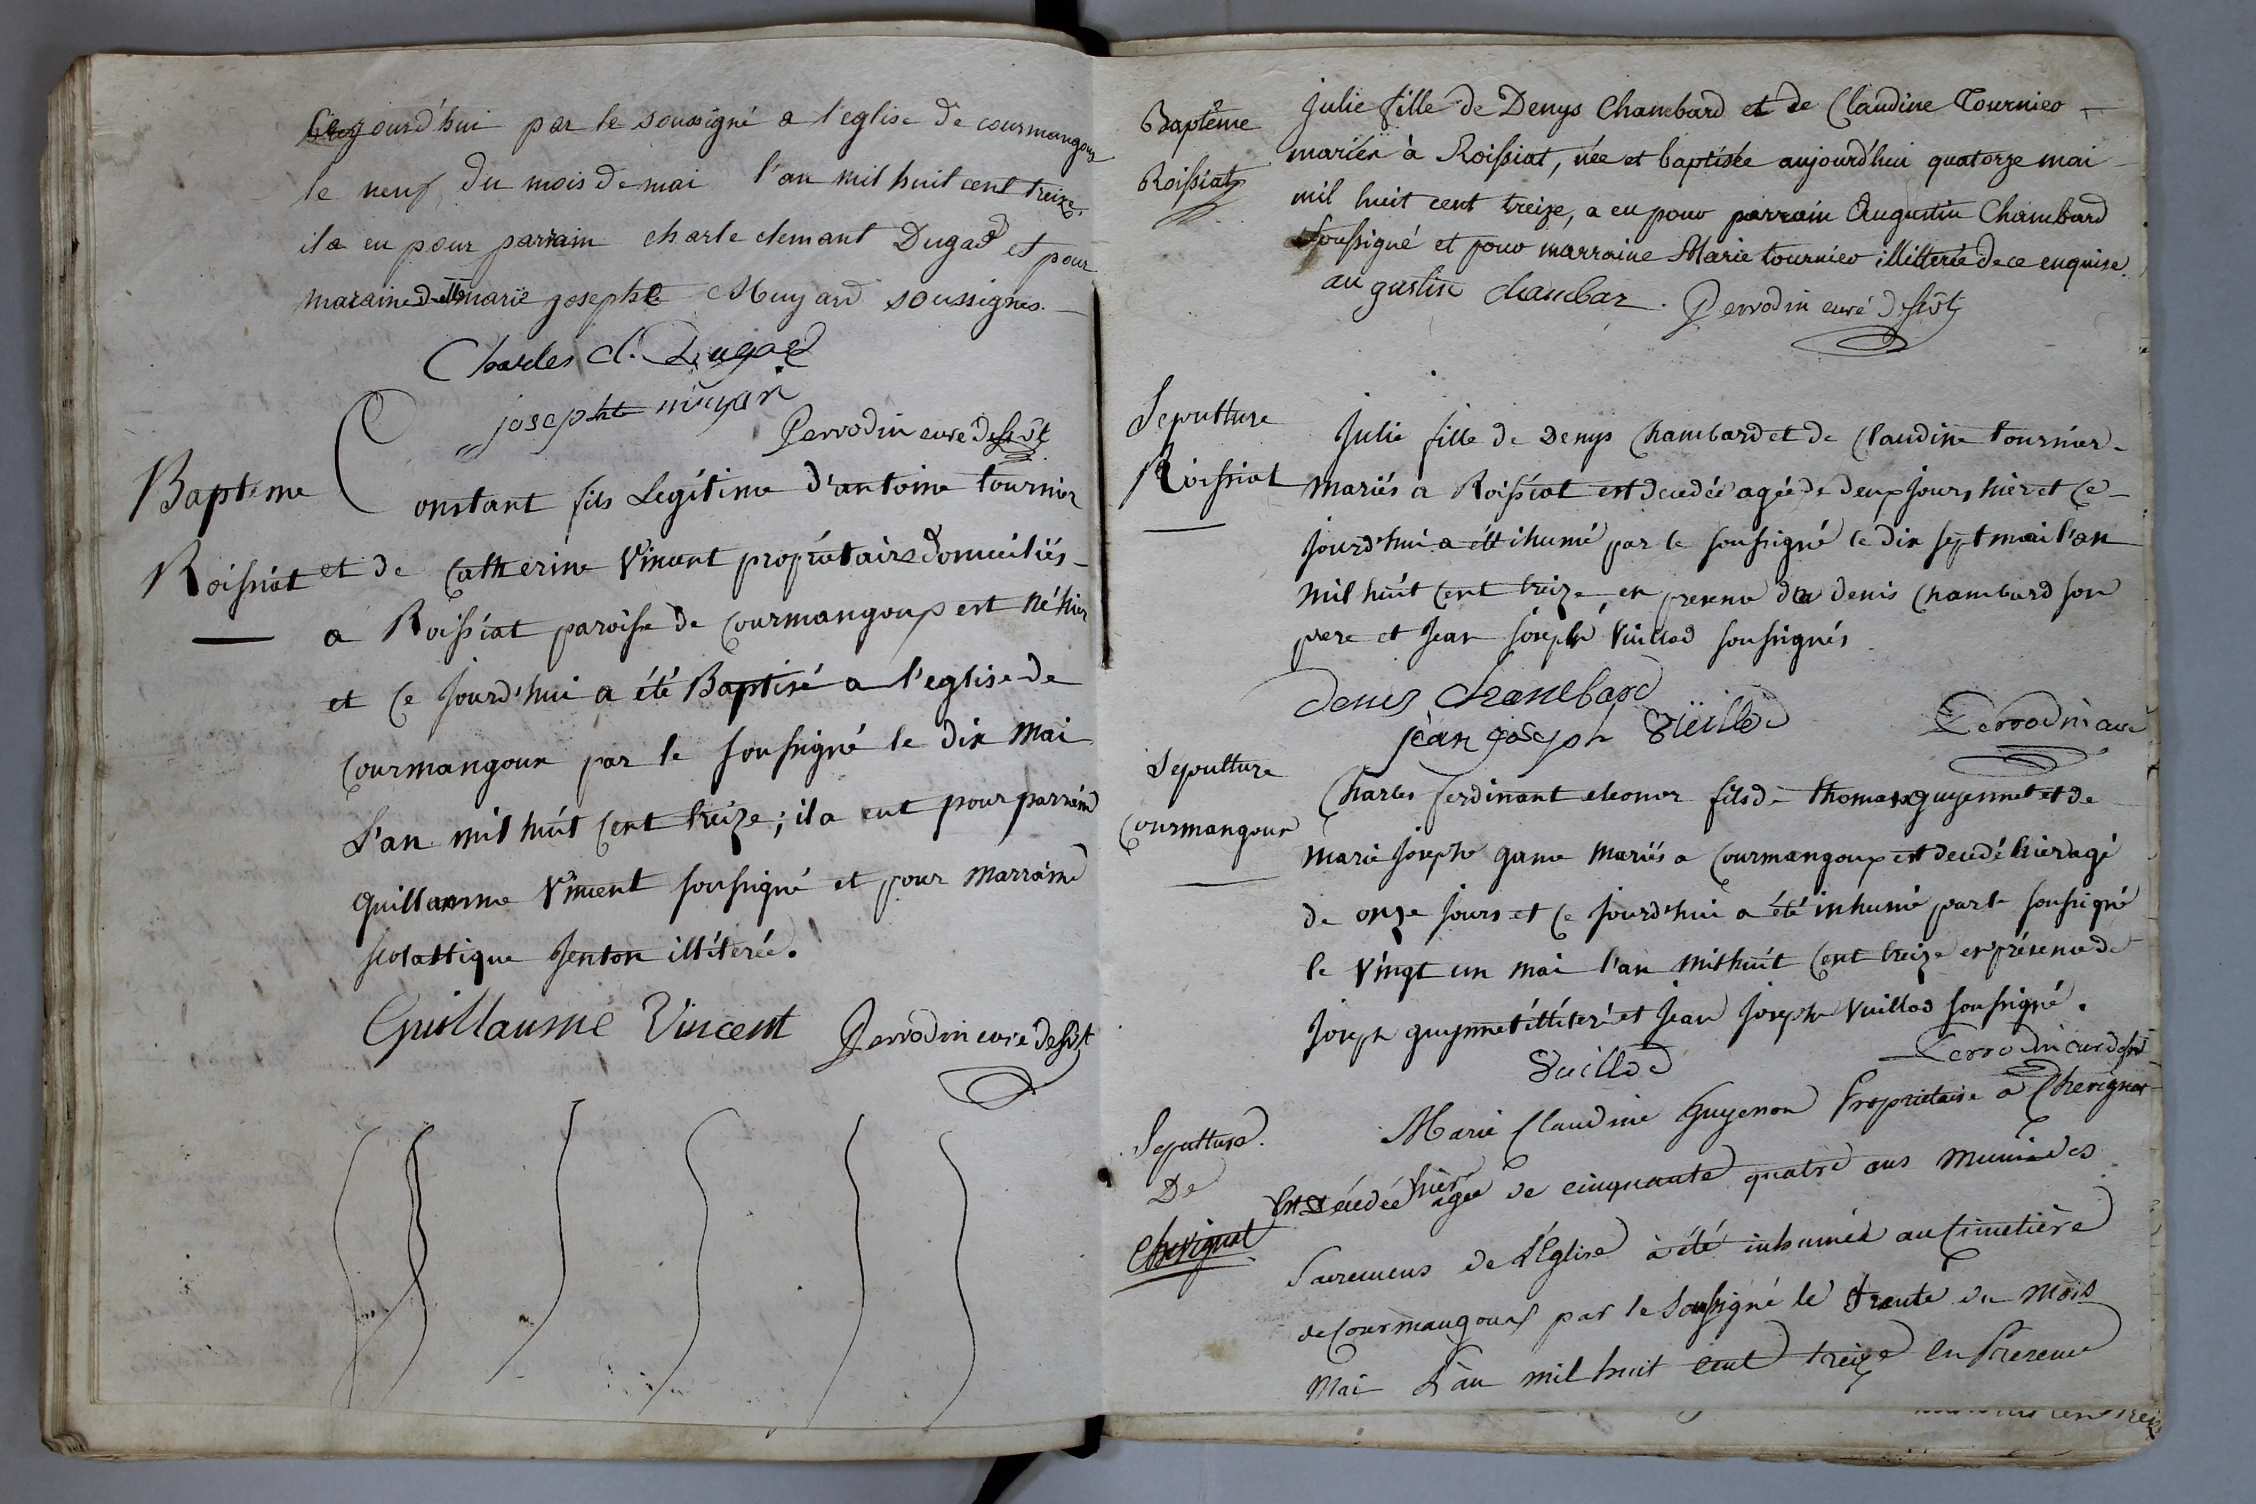 jourd'hui par le soussigné a l'eglise de courmangoux
le neuf du mois de mai l'an mil huit cent treize.
il a eu pour parrain charle clemant Dugad et pour
maraine d.elle marie josephte Muyard soussignes.
Charles C. Dugad
josephte muyar
Perrodin curé desst
Bapteme
Roissiat
Constant fils Legitime d'antoine tournier
et de Catherine Vincent proprietaire domiciliés
a Roissiat paroisse de Courmangoux est né hier
et Ce jourd'hui a été Baptisé a l'eglise de
Courmangoux par le soussigné le dix Mai
L'an mil huit Cent treize; il a eut pour parrein
guillaume Vincent soussigné et pour Marraine
scolastique Jenton illiterée.
Guillaume Vincent
Perrodin curé desst
Baptême
Roissiat
Julie fille de Denys Chambard et de Claudine Tournier
mariés à Roissiat, née et baptisée aujourd'hui quatorze mai
mil huit cent treize, a eu pour parrain Augustin Chambard
soussigné et pour marraine Marie tournier illitterée de ce enquise.
augustin chambar. Perrodin curé desst
Sepulture
Roissiat
Julie fille de Denys Chambard et de Claudine tournier
Mariés a Roissiat est decedée agée de deux jours hier et Ce
jourd'hui a été ihumé par le soussigné le dix sept mai l'an
Mil huit Cent treize en presence de denis Chambard son
pere et Jean Joseph Vuillod soussignés
denis chambard
jean joseph Vuillod
Perrodin curé
Sepulture
Courmangoux
Charles ferdinant eleonor fils de thomas guyennet et de
Marie Josephe game Mariés a Courmangoux est decedé hier agé
de onze jours et Ce jourd'hui a été inhumé par le soussigné
le Vingt un mai l'an mil huit Cent treize en présence de
Joseph guyennet illiteré et Jean Joseph Vuillod soussigné.
Vuillod
Perrodin curé desst
Sepulture
De
Chevignat
Marie Claudine Guyenon Proprietaire a Chevignat
Est Décédée hier agée de cinquante quatre ans Munie des
Sacremens de L'Eglise à été inhumée au Cimetière
de Courmangoux par le Soussigné le trente du Mois
Mai L'an mil huit cent treize En Presence